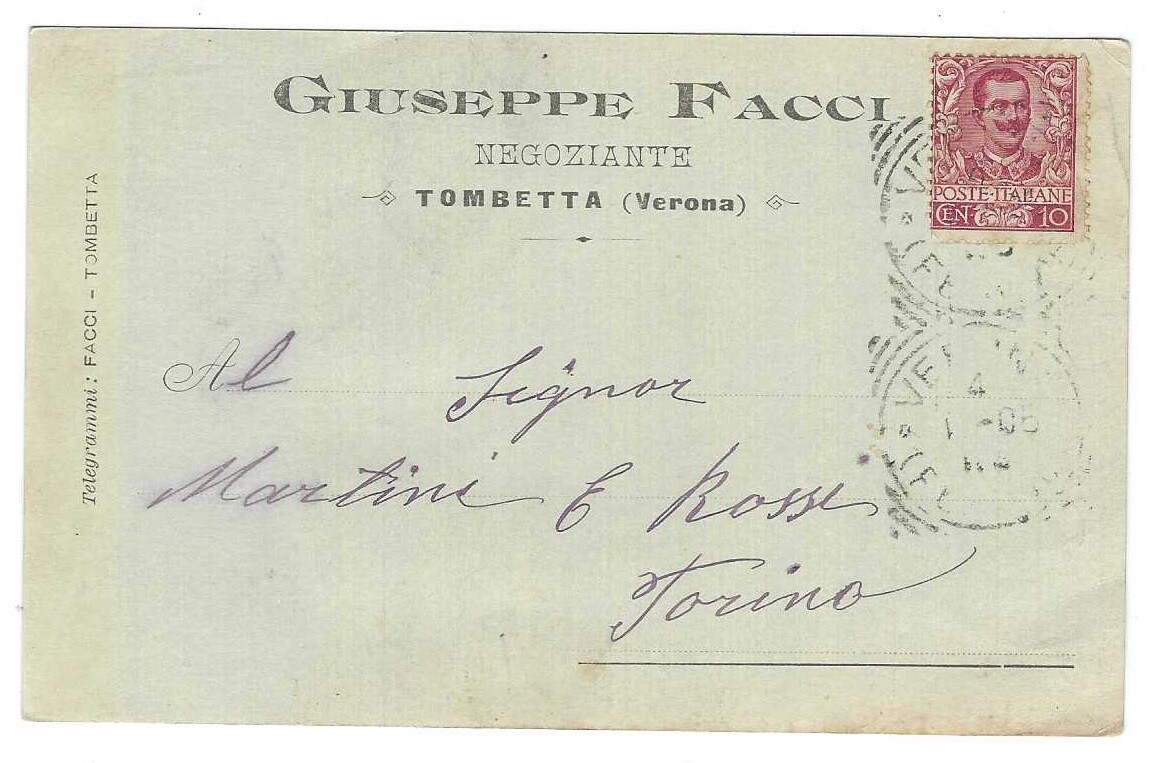 GIUSEPPE FACCI
NEGOZIANTE
TOMBETTA (Verona)
Telegrammi: FACCI - TOMBETTA
POSTE·ITALIANE
CEN 10
Al Signor
Martini E Rossi
Torino
4
-05